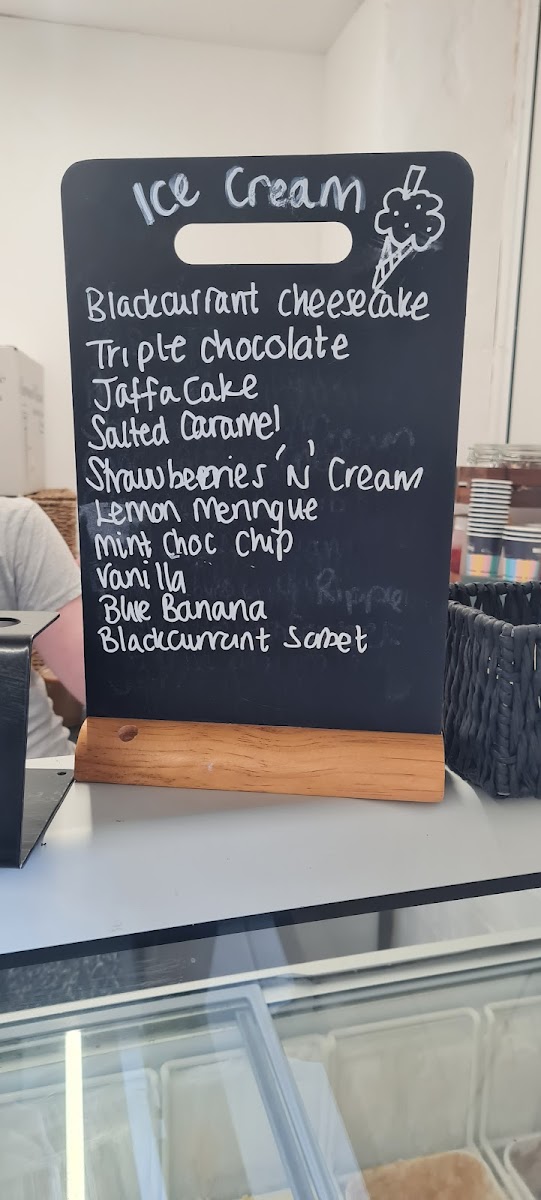 Ice Cream
Blackcurrant cheesecake
Triple chocolate
Jaffa Cake
Salted Caramel
Strawberries 'N' Cream
Lemon Meringue
mint choc chip
Vanilla
Blue Banana
Blackcurrant Sorbet
Ripple